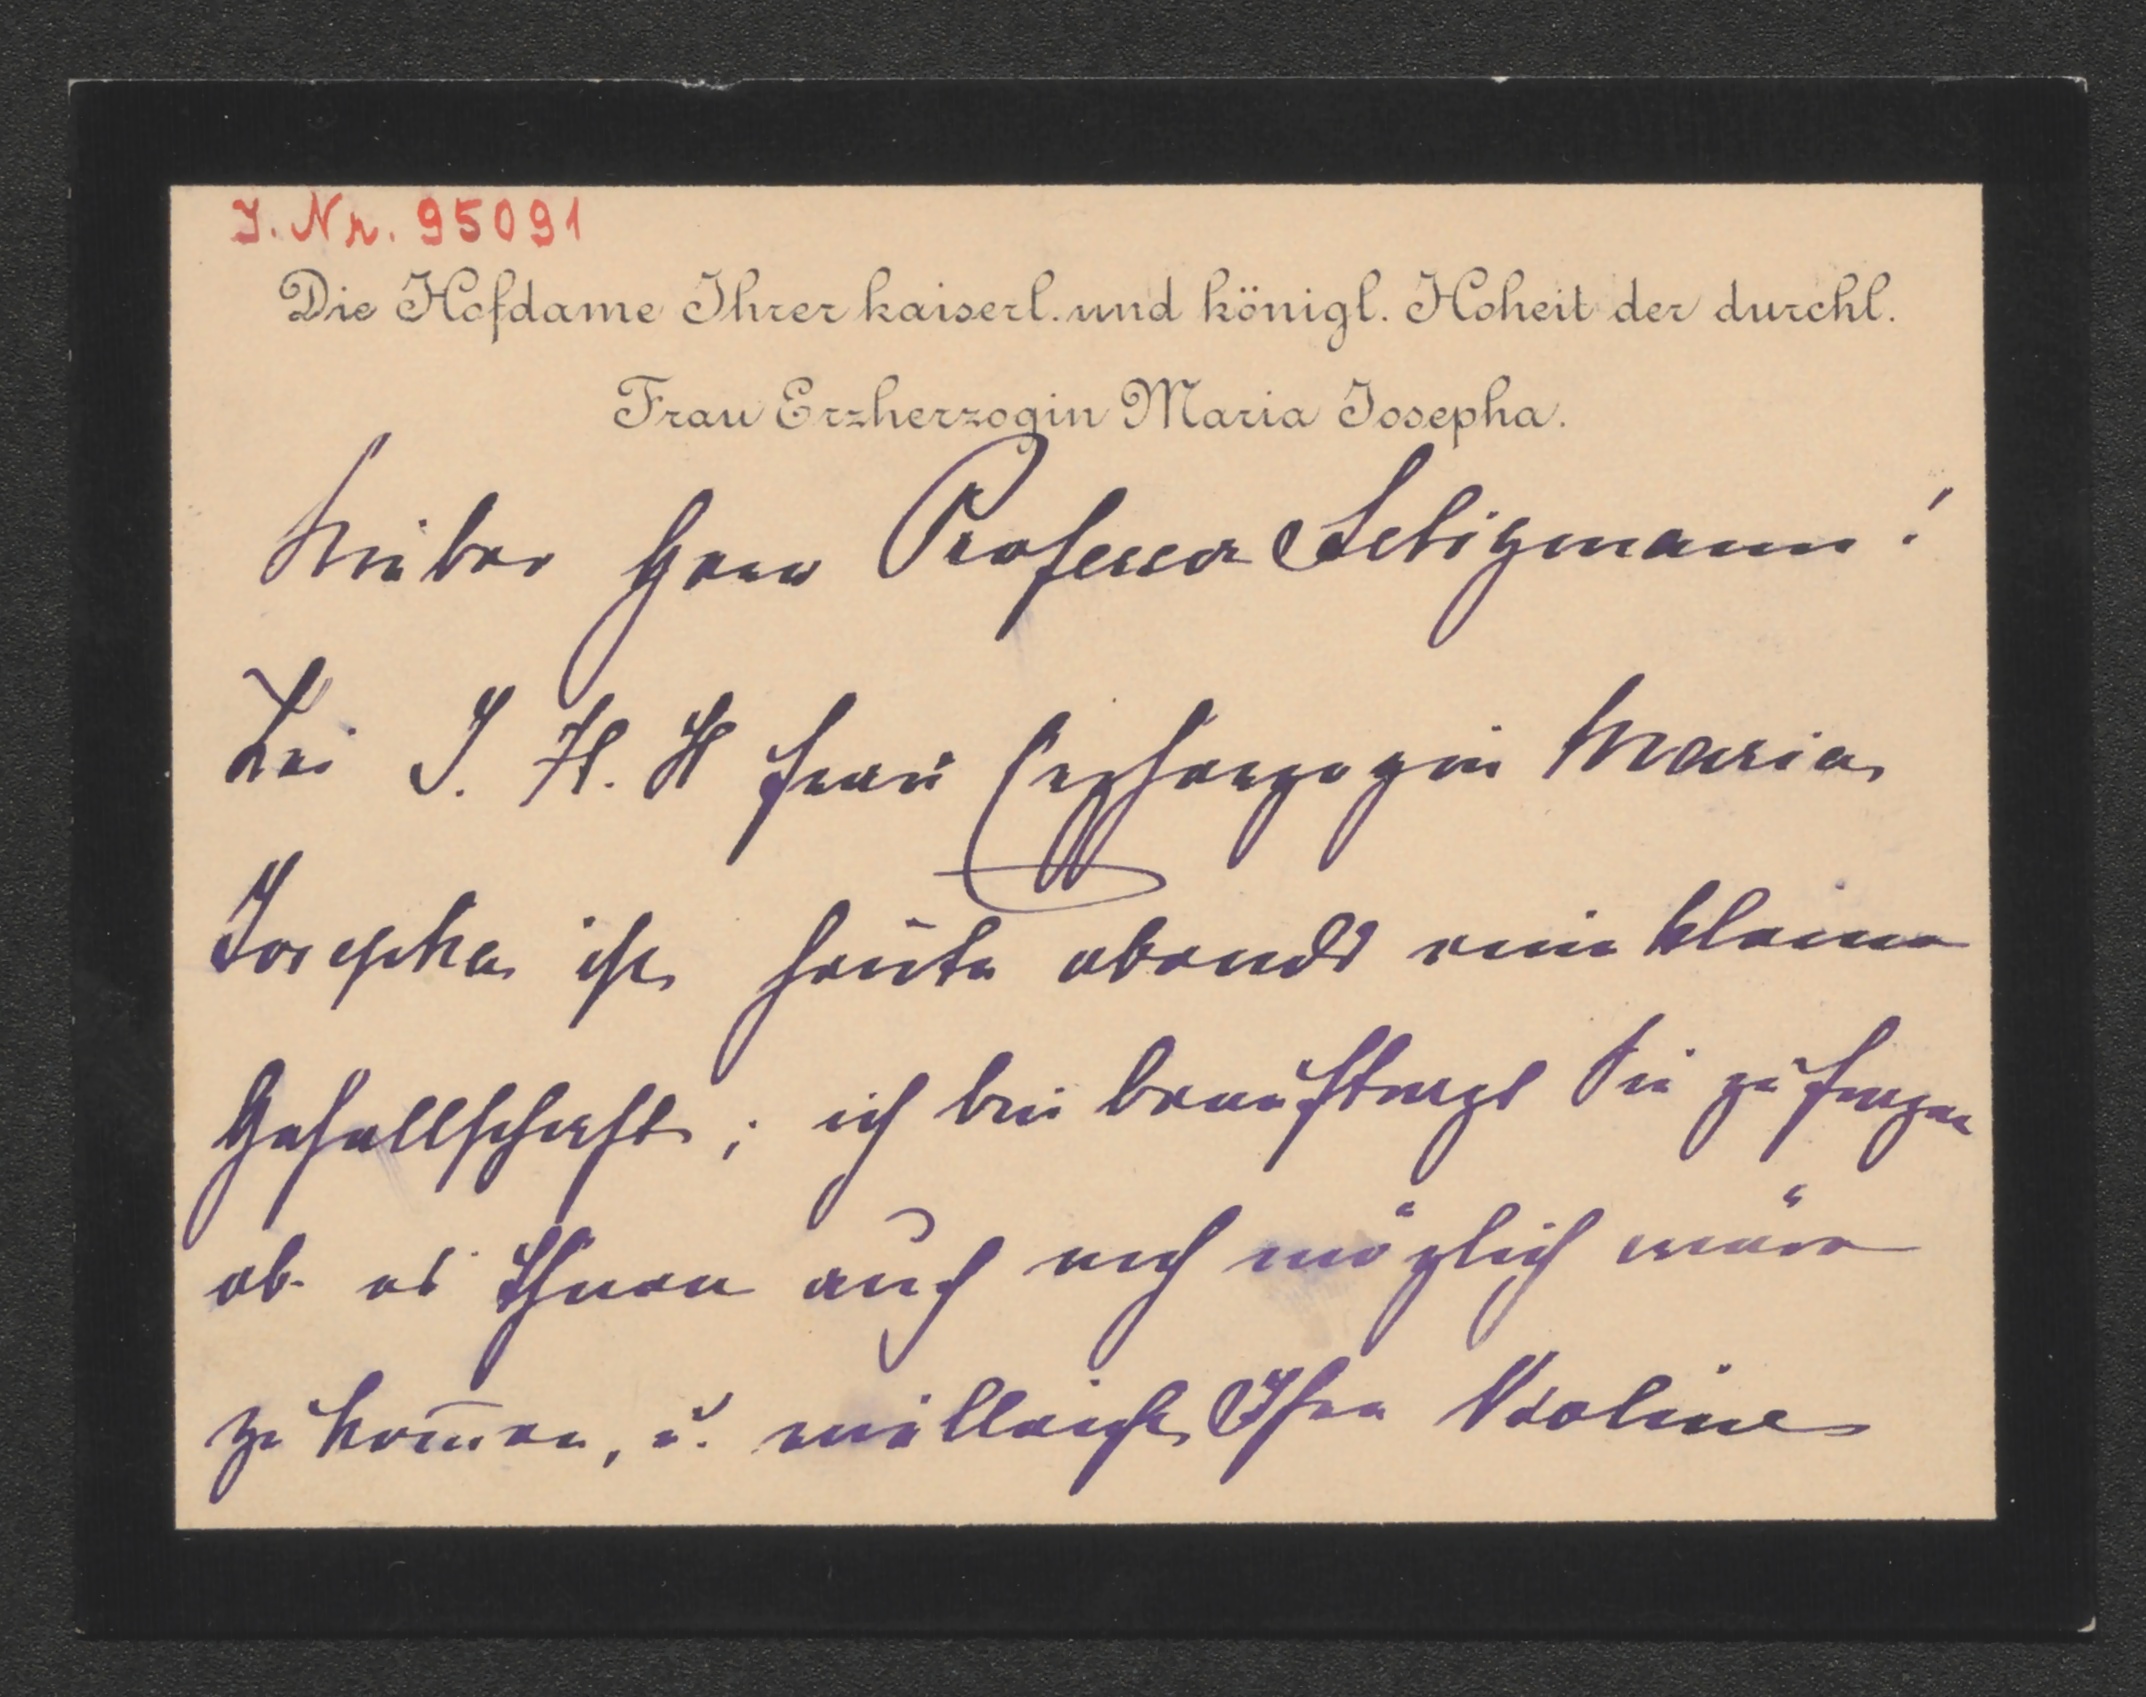 J. Nr. 95091
Die Hofdame Ihrer kaiserl. und königl. Hoheit der durchl.
Frau Erzherzogin Maria Josepha.
Lieber Herr Professor Seligmann!
Bei I. H. H Frau Erzherzogin Maria
Josepha ist heute abends eine kleine
Gesellschaft; ich bin beauftragt Sie zu fragen
ob es Ihnen auch möglich wäre
zu kom̄en, u. vielleicht Ihre Violine